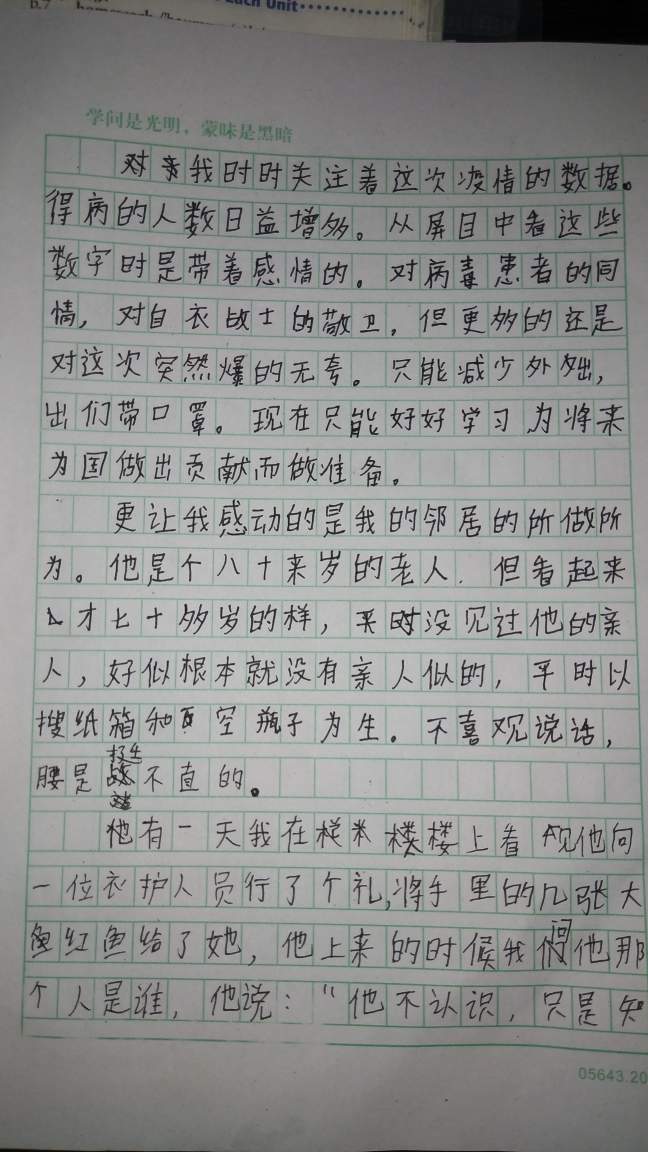 Each Unit
学问是光明，蒙昧是黑暗
对我时时关注着这次疫情的数据。
得病的人数日益增多。从屏目中看这些
数字时是带着感情的。对病毒患者的同
情，对白衣战士的敬卫，但更多的还是
对这次突然爆的无夸。只能减少外出，
出们带口罩。现在只能好好学习为将来
为国做出贡献而做准备。
更让我感动的是我的邻居的所做所
为。他是个八十来岁的老人．但看起来
才七十多岁的样，平时没见过他的亲
人，好似根本就没有亲人似的，平时以
搜纸箱和空瓶子为生。不喜观说话，
腰是不直的。
他有一天我在楼上看他向
一位衣护人员行了个礼，将手里的几张大
鱼红鱼给了她，他上来的时候我问他那
个人是谁，他说：“他不认识，只是知
05643.20